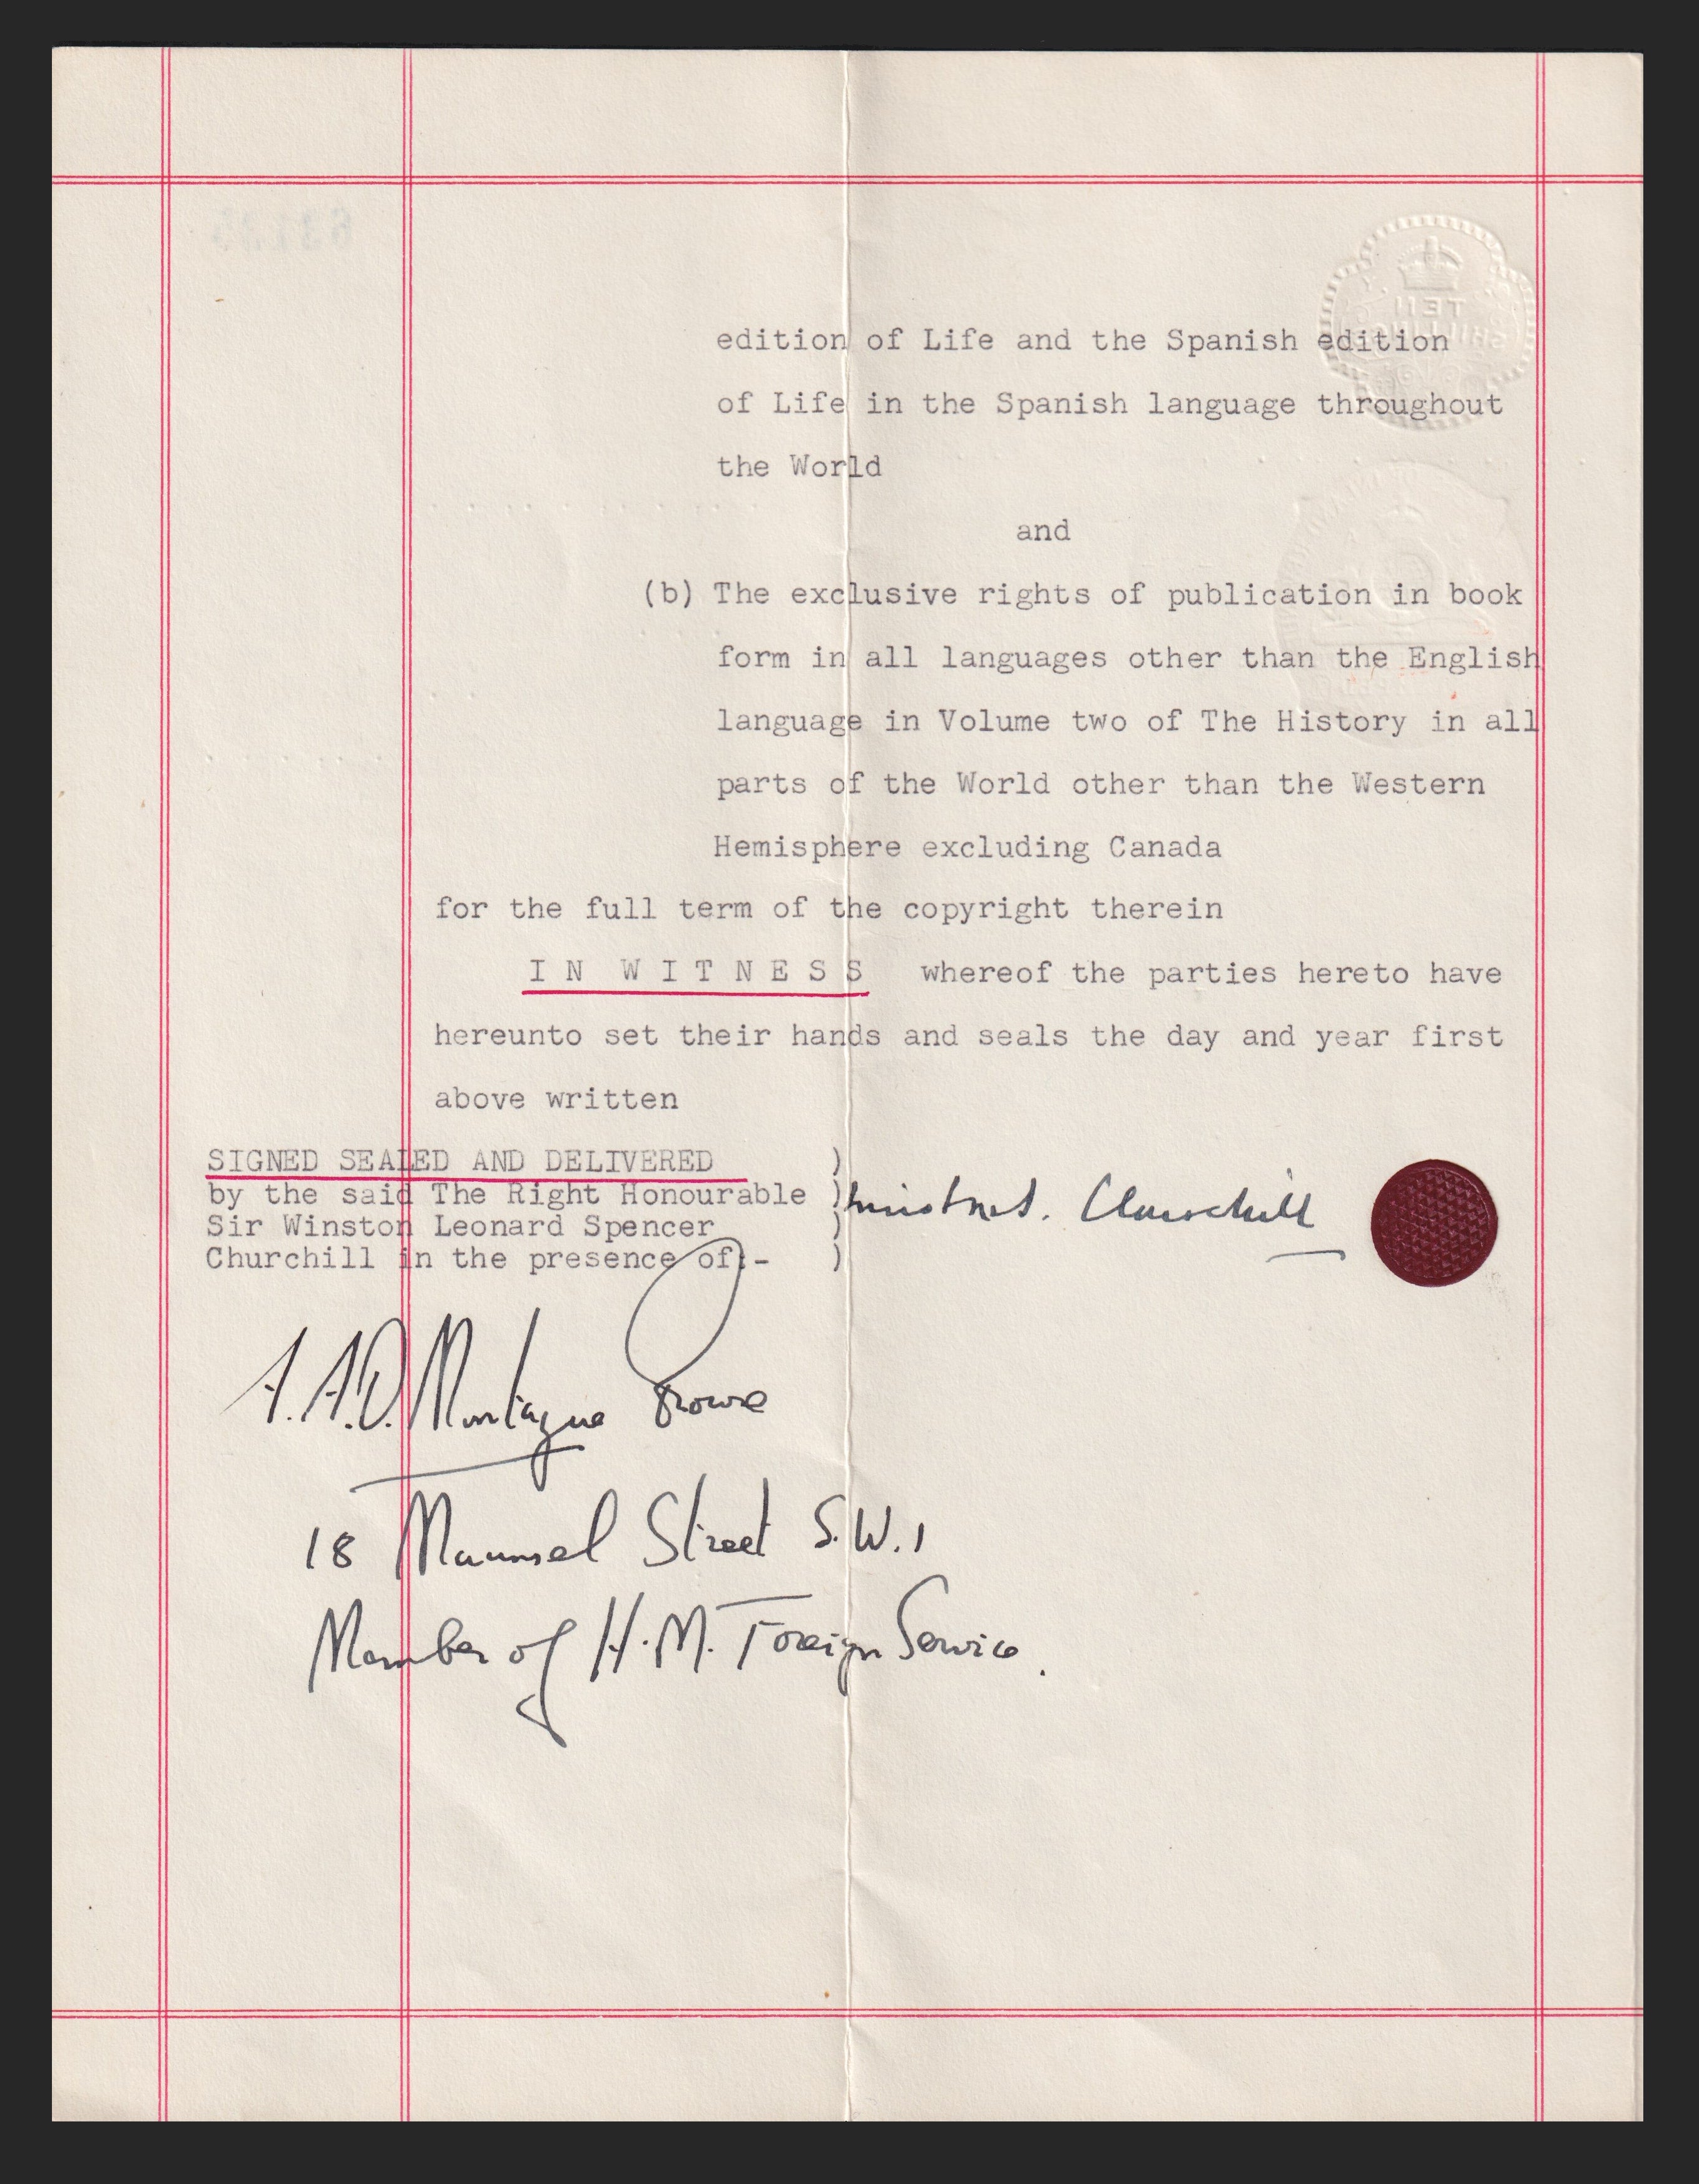 TEN
SHILLINGS
edition of Life and the Spanish edition
of Life in the Spanish language throughout
the World
and
(b) The exclusive rights of publication in book
form in all languages other than the English
language in Volume two of The History in all
parts of the World other than the Western
Hemisphere excluding Canada
for the full term of the copyright therein
IN WITNESS whereof the parties hereto have
hereunto set their hands and seals the day and year first
above written
SIGNED SEALED AND DELIVERED )
by the said The Right Honourable )
Sir Winston Leonard Spencer )
Churchill in the presence of:- )
Winston S. Churchill
A.A.D. Montague Browne
18 Maunsel Street S.W.1
Member of H.M. Foreign Service.